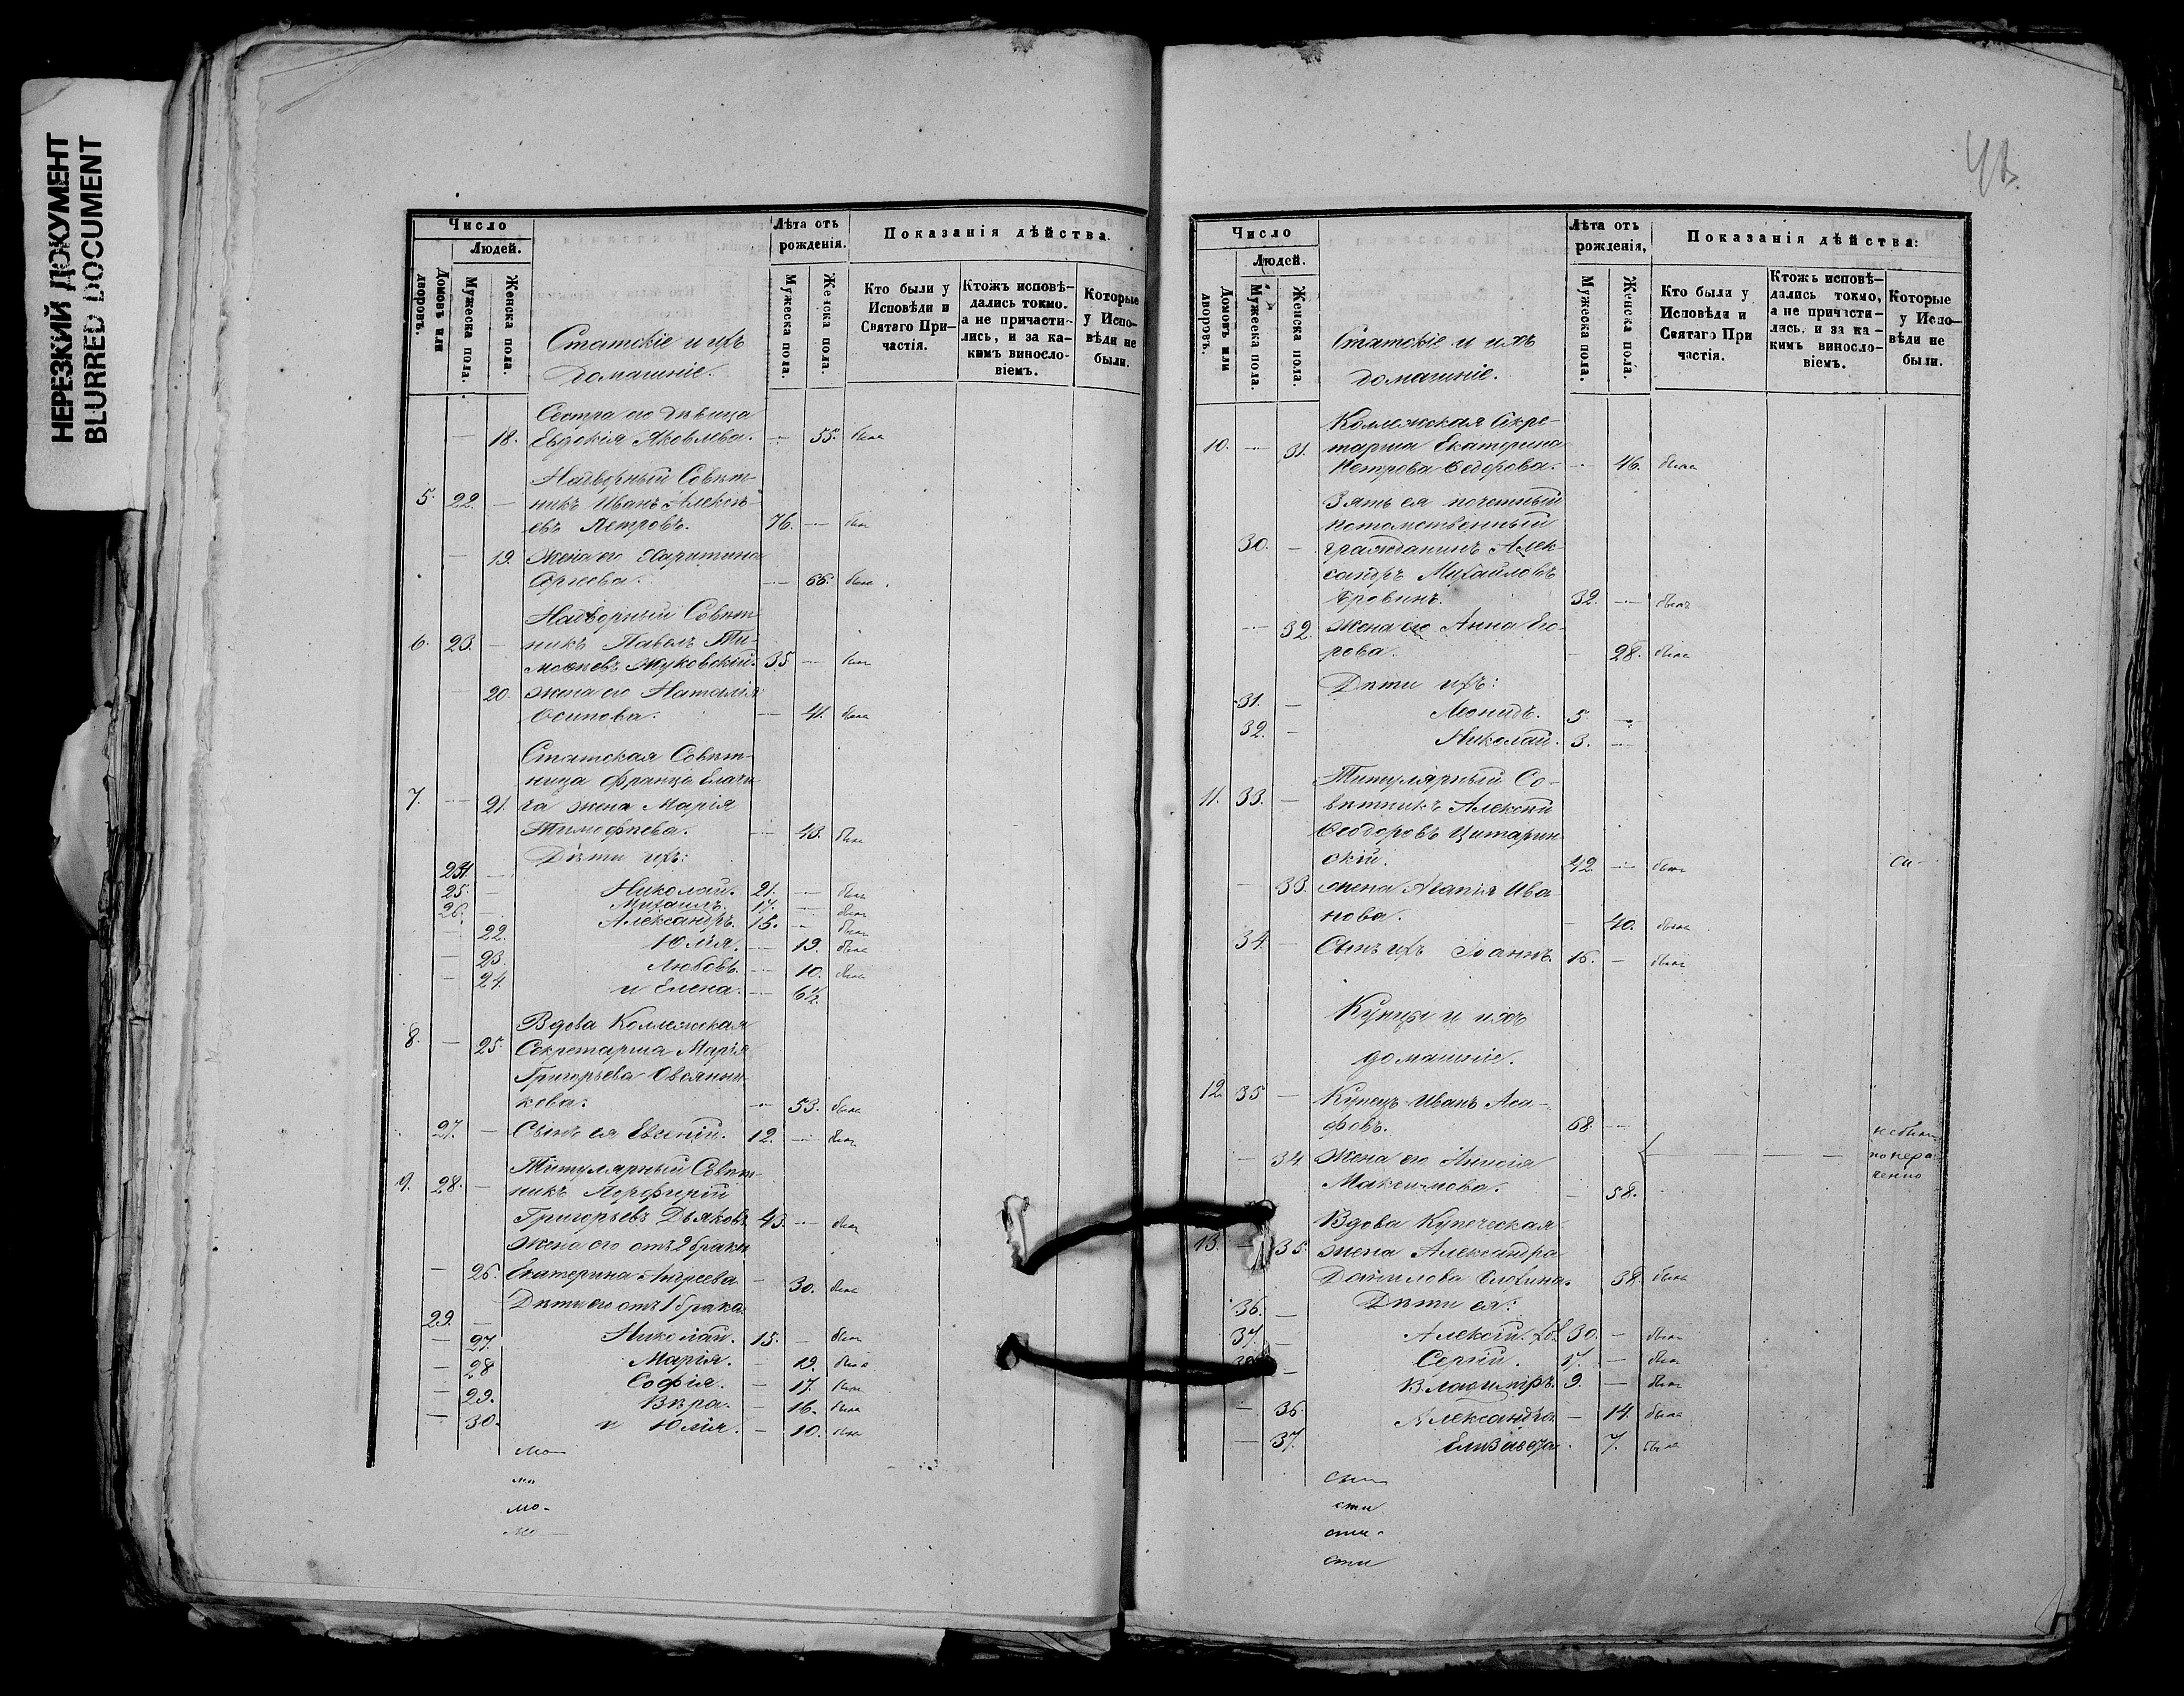 НЕРЕЗКИЙ ДОКУМЕНТ
BLURRED DOCUMENT
Число
Людей.
Домовъ или дворовъ.
Мужеска пола.
Женска пола.
Статскіе и ихъ
домашніе.
Лѣта отъ
рожденія.
Мужеска пола.
Женска пола.
Показанія дѣйства.
Кто были у
Исповѣди и
Святаго При-
частія.
Ктожъ исповѣ-
дались токмо,
а не причасти-
лись, и за ка-
кимъ винносло-
віемъ.
Которые
у Испо-
вѣди не
были.
Сестра его дѣвица
18. Евдокія Яковлева. 55. была
Надворный Совѣт-
5. 22. — никъ Иванъ Алексѣ-
евъ Петровъ. 76. — былъ
— 19. Жена его Харитина
66. была
Надворный Совѣт-
6. 23. — никъ Павелъ Ти-
моѳеевъ Жуковскій. 35 — былъ
20. Жена его Наталія
Осипова. — 41. была
Статская Совѣт-
ница Франца
7. — 21. жена Марія
Тимофѣева. — 43. была
Дѣти ихъ:
24. —
25. — Николай. 21. — былъ
26. — Михаилъ. 17. — былъ
Александръ. 15. — былъ
— 22. Юлія. — 19. была
— 23. Любовь. — 10. была
— 24. и Елена. — 6½.
Вдова Коллежская
8. — 25. Секретарша Марія
Григорьева Овсянни-
кова. — 53. была
27. — Сынъ ея Евгеній. 12. — былъ
Титулярный Совѣт-
9. 28. — никъ Порфирій
Григорьевъ Дьяковъ 43. — былъ
Жена его отъ 2 брака
— 26. Екатерина Андреева — 30. была
Дѣти его отъ 1 брака
29. —
— 27. Николай. 15. — былъ
— 28 Марія. — 19. была
— 29. Софія. — 17. была
— 30. Вѣра. — 16. была
и Юлія. — 10. была
мо
мо
мо-
мо
Число
Людей.
Домовъ или дворовъ.
Мужеска пола.
Женска пола.
Статскіе и ихъ
домашніе.
Лѣта отъ
рожденія,
Мужеска пола.
Женска пола.
Показанія дѣйства:
Кто были у
Исповѣди и
Святаго При
частія.
Ктожъ исповѣ-
дались токмо,
а не причасти-
лись, и за ка-
кимъ винносло-
віемъ.
Которые
у Испо-
вѣди не
были.
Коллежская Секре-
10. — 31. тарша Екатерина
Петрова Федорова. — 46. была
Зять ея почетный
потомственный
30. — гражданинъ Алек-
сандръ Михайловъ
32. — былъ
— 32. Жена его Анна Его-
рова. — 28. была
Дѣти ихъ:
31. — Леонидъ. 5. —
32. — Николай. 3. —
Титулярный Со-
11. 33. — вѣтникъ Алексѣй
Ѳеодоровъ Цитарин
скій. 42. — былъ
— 33. жена Агапія Ива
нова. — 40. была
34. — Сынъ ихъ Іоаннъ. 16. — былъ
Купцы и ихъ
домашніе.
12. 35 — Купецъ Иванъ Ага-
фовъ. 68. —
— 34. Жена его Анисія
Максимова. — 58.
не были
по нера-
денію
Вдова Купеческая
13. — 35. жена Александра
Данилова 38. была
Дѣти ея:
36. — Алексѣй. 30. — былъ
37. — Сергій. 17. — былъ
— Владиміръ. 9. — былъ
— 36. Александра. — 14. была
— 37. Елизавета. 7. была
сти
сти
сти